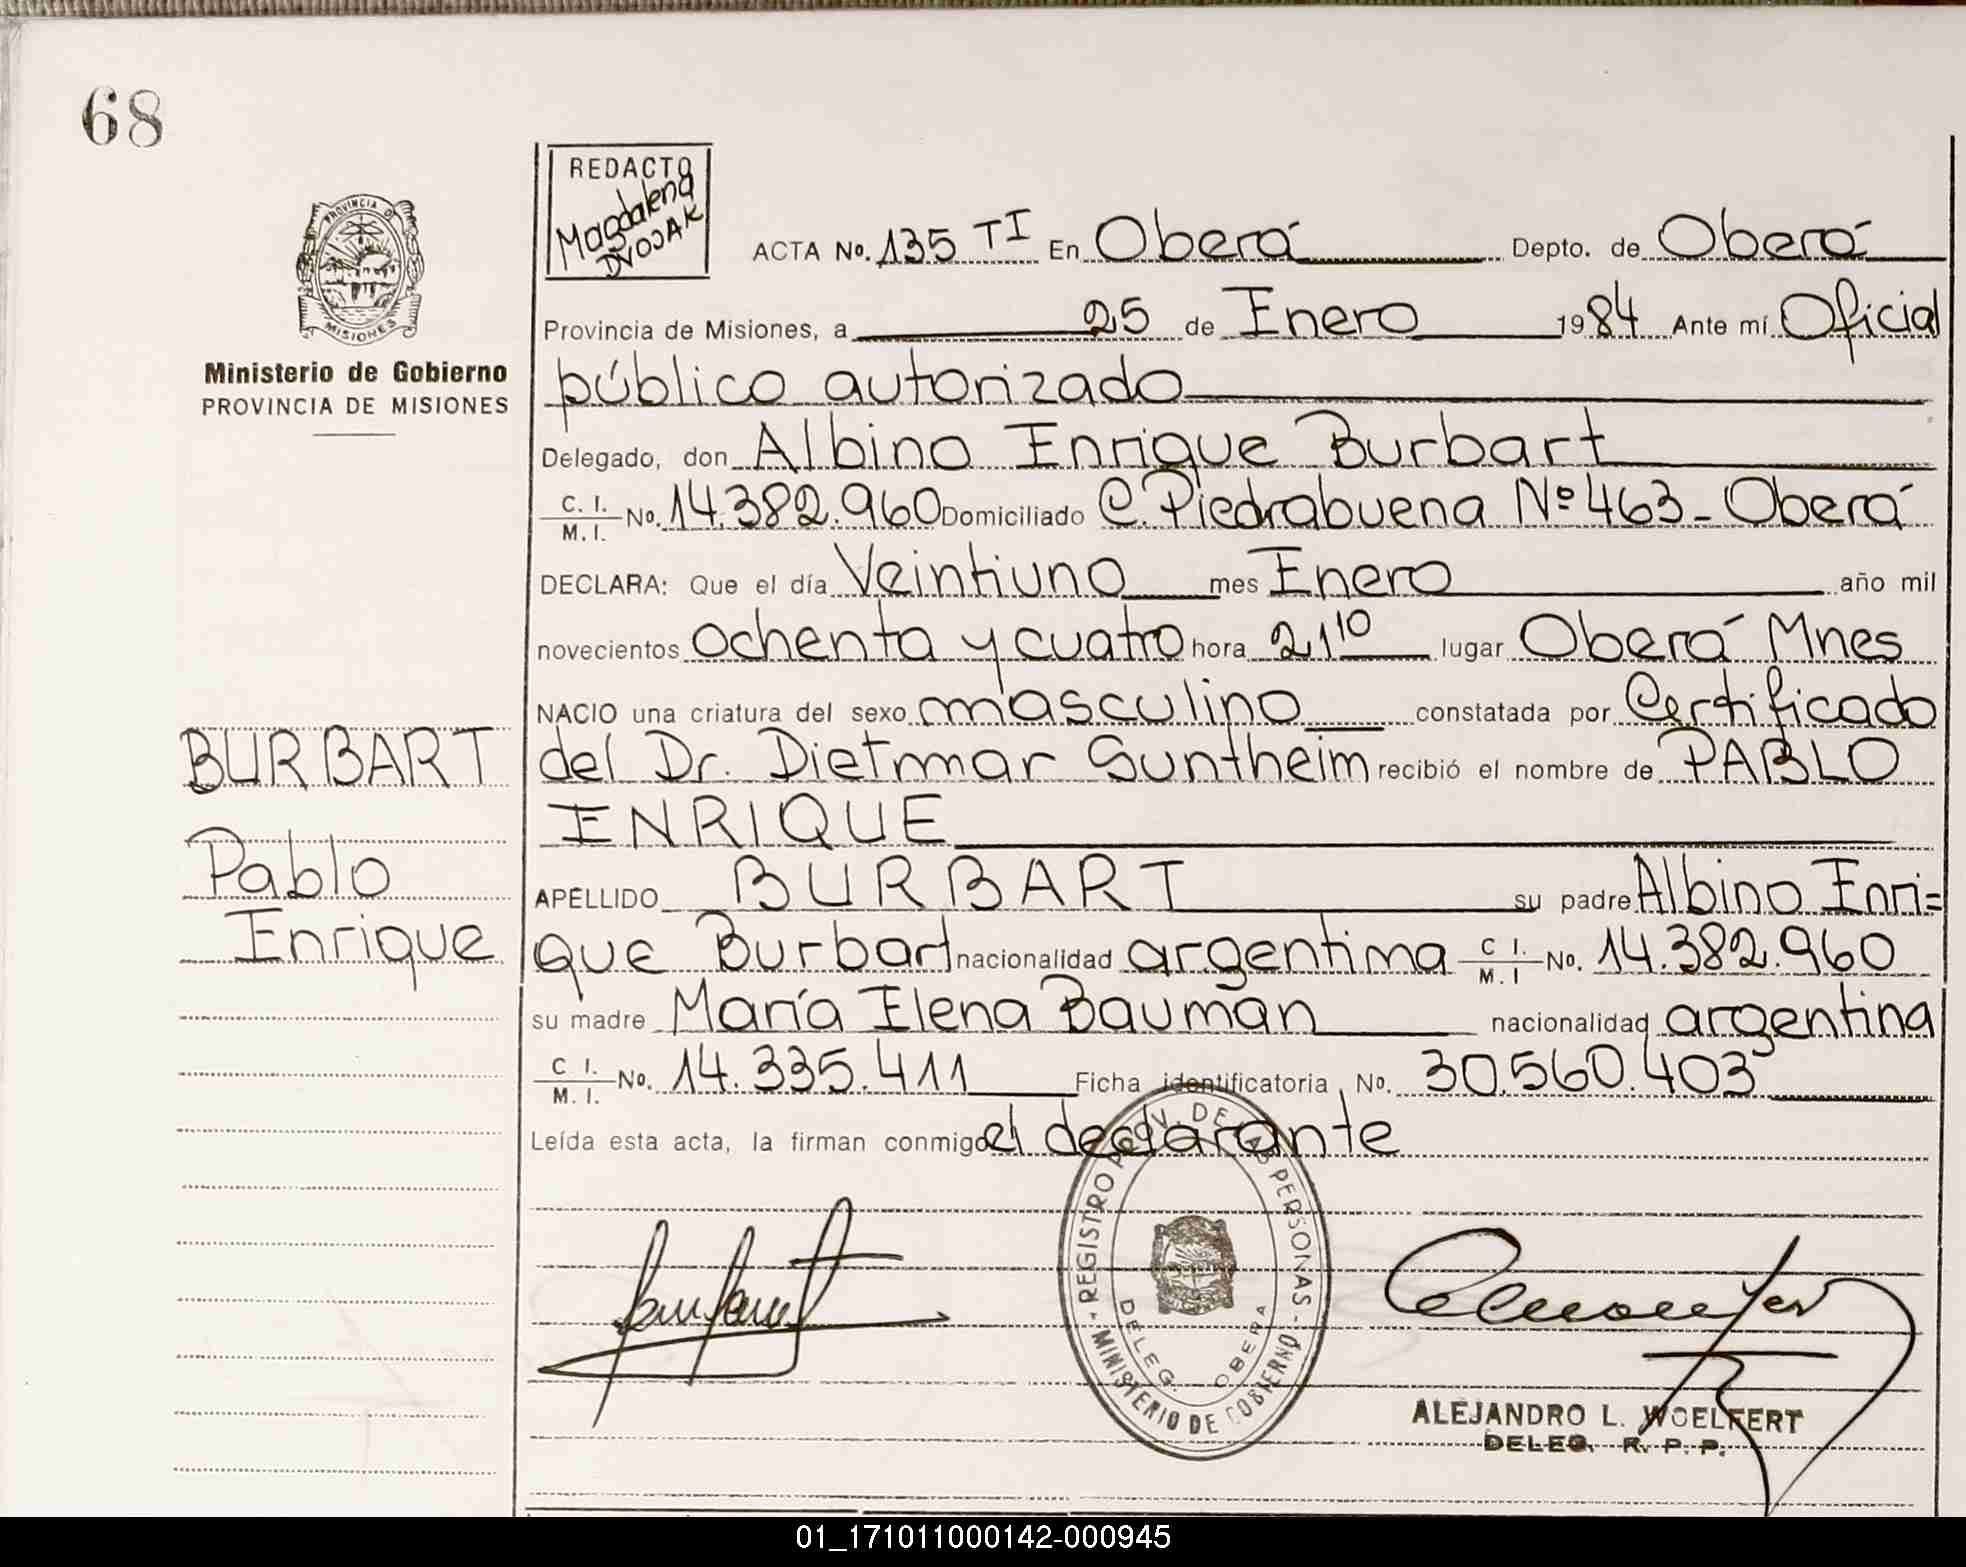 68
REDACTO
Magdalena
DVOJAK
PROVINCIA D
MISIONES
Ministerio de Gobierno
PROVINCIA DE MISIONES
ACTA No. 135 TI En Oberá Depto. de Oberá
Provincia de Misiones, a 25 de Enero 1984 Ante mí Oficial
público autorizado
Delegado, don Albino Enrique Burbart
C. I. / M. I. No. 14.382.960 Domiciliado C. Piedrabuena Nº 463 - Oberá
DECLARA: Que el día Veintiuno mes Enero año mil
novecientos Ochenta y cuatro hora 21 10 lugar Oberá Mnes
NACIO una criatura del sexo masculino constatada por Certificado
del Dr. Dietmar Suntheim recibió el nombre de PABLO
ENRIQUE
APELLIDO BURBART su padre Albino Enri=
que Burbart nacionalidad argentina C I. / M. I No. 14.382.960
su madre María Elena Bauman nacionalidad argentina
C I. / M. I. No. 14.335.411 Ficha identificatoria No. 30.560.403
Leída esta acta, la firman conmigo el declarante
BURBART
Pablo
Enrique
REGISTRO PROV. DE LAS PERSONAS - MINISTERIO DE GOBIERNO -
DELEG. OBERA
ALEJANDRO L. WOELFERT
DELEG. R. P. P.
01_171011000142-000945